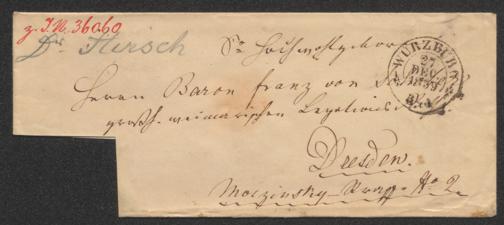 z. J. N. 36060
Dr. Hirsch
Sr. Hochwohlgeboren
WÜRZBURG
27
DEC.
Herrn Baron Franz von
großh. weimarischen Legations
Dresden.
Moczinsky-Straße No 2.